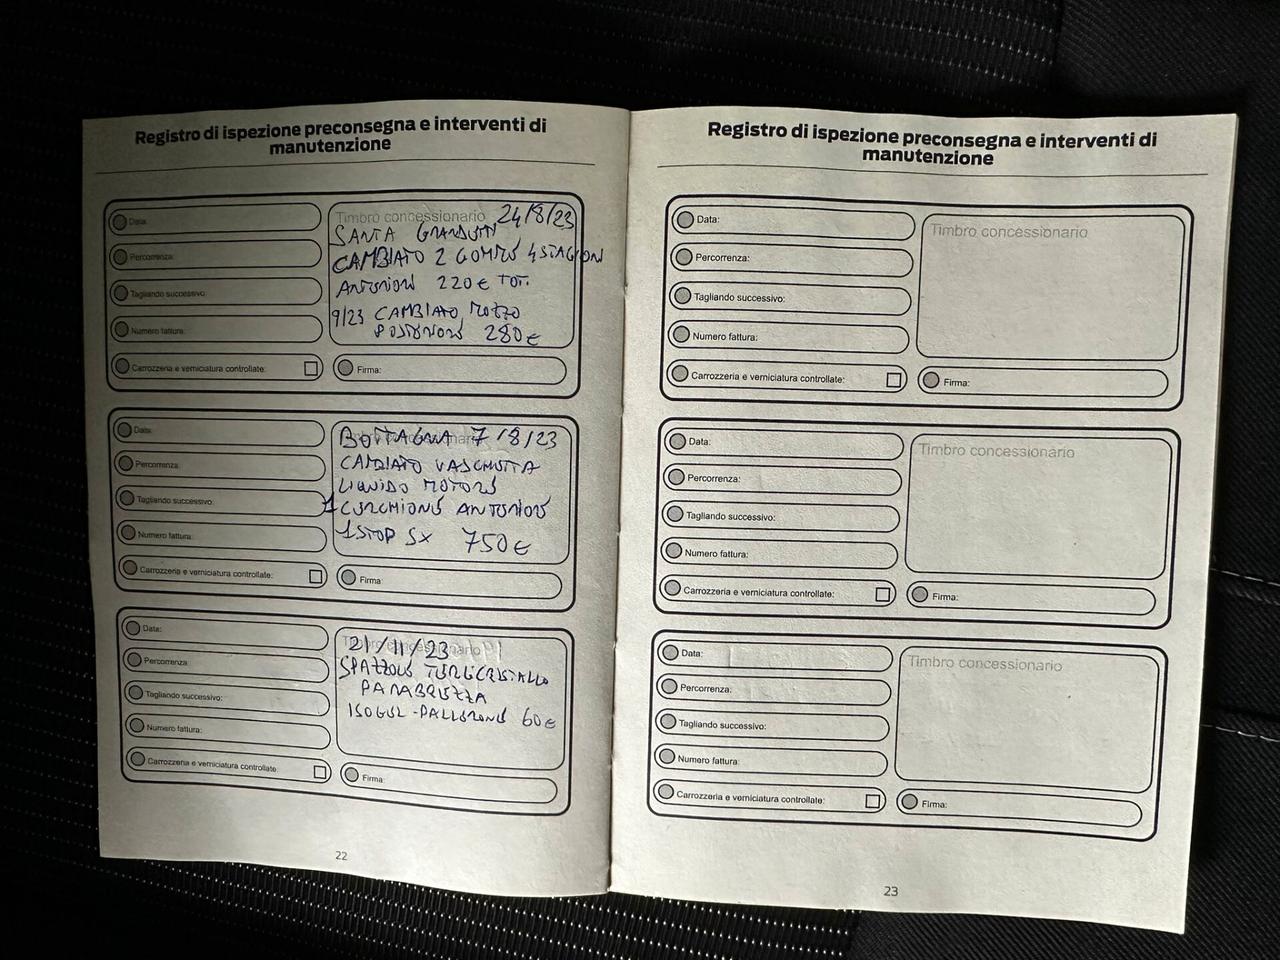 Registro di ispezione preconsegna e interventi di
manutenzione
Data:
Percorrenza:
Tagliando successivo:
Numero fattura:
Carrozzeria e verniciatura controllate:
Timbro concessionario 24/8/23
SANTA
CAMBIATO 2 GOMME 4 STAGIONI
ANTERIORI 220€ TOT.
9/23 CAMBIATO MOZZO
POSTERIORE 280€
Firma:
Data:
Percorrenza:
Tagliando successivo:
Numero fattura:
Carrozzeria e verniciatura controllate:
BOTTAGNA 7/8/23
CAMBIATO VASCHETTA
LIQUIDO MOTORE
1 CERCHIONE ANTERIORE
1 STOP SX 750€
Firma:
Data:
Percorrenza:
Tagliando successivo:
Numero fattura:
Carrozzeria e verniciatura controllate:
21/11/23
SPAZZOLE TERGICRISTALLO
PARABREZZA
60€
Firma:
22
Registro di ispezione preconsegna e interventi di
manutenzione
Data:
Percorrenza:
Tagliando successivo:
Numero fattura:
Carrozzeria e verniciatura controllate:
Timbro concessionario
Firma:
Data:
Percorrenza:
Tagliando successivo:
Numero fattura:
Carrozzeria e verniciatura controllate:
Timbro concessionario
Firma:
Data:
Percorrenza:
Tagliando successivo:
Numero fattura:
Carrozzeria e verniciatura controllate:
Timbro concessionario
Firma:
23